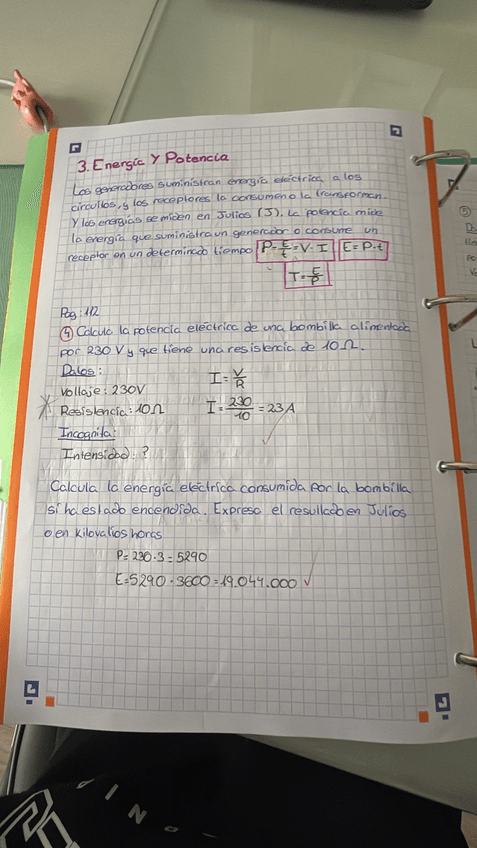 3. Energía Y Potencia
Los generadores suministran energía eléctrica a los
circuitos, y los receptores la consumen o la transforman.
Y las energías se miden en Julios (J). La potencia mide
la energía que suministra un generador o consume un
receptor en un determinado tiempo P=E/t=V·I E=P·t
T=E/P
Pag: 112
④ Calcula la potencia eléctrica de una bombilla alimentada
por 230 V y que tiene una resistencia de 10 Ω.
Datos:
Voltaje: 230V I=V/R
Resistencia: 10Ω I=230/10=23A
Incognita:
Intensidad: ?
Calcula la energía eléctrica consumida por la bombilla
si ha estado encendida. Expresa el resultado en Julios
o en kilovatios horas
P=230·3=5290
E=5290·3600=19.044.000